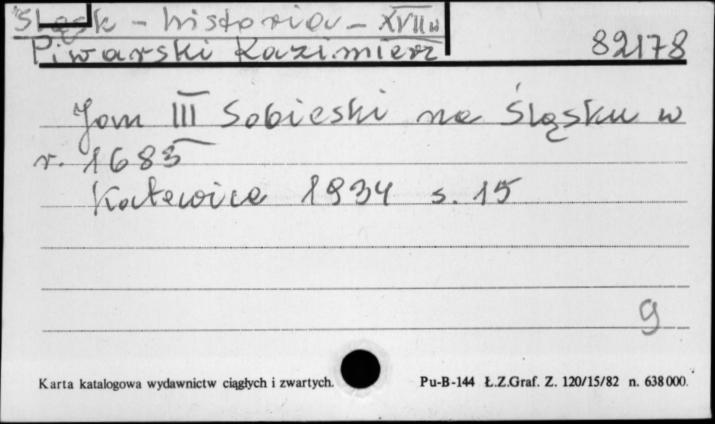 Śląsk - historia - XVII w
Piwarski Kazimierz 82178
Jan III Sobieski na Śląsku w
r. 1683
Katowice 1934 s. 15
g
Karta katalogowa wydawnictw ciągłych i zwartych. Pu-B-144 Ł.Z.Graf. Z. 120/15/82 n. 638000.